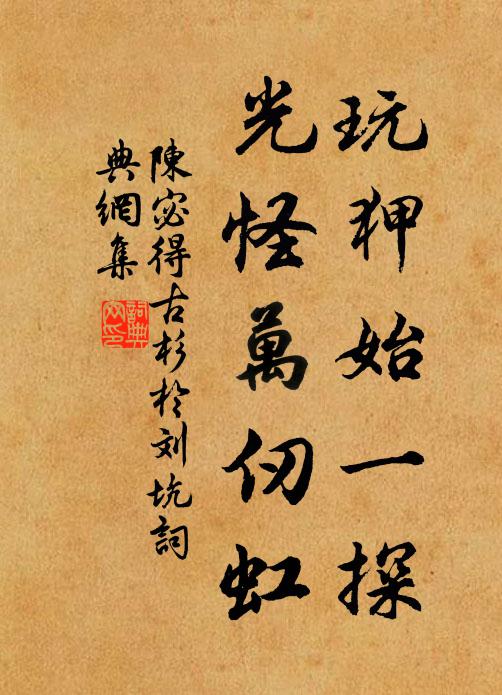 玩狎始一探
光怪萬仞虹
陳宓得古杉於刘坑詞
典網集
詞典
网印